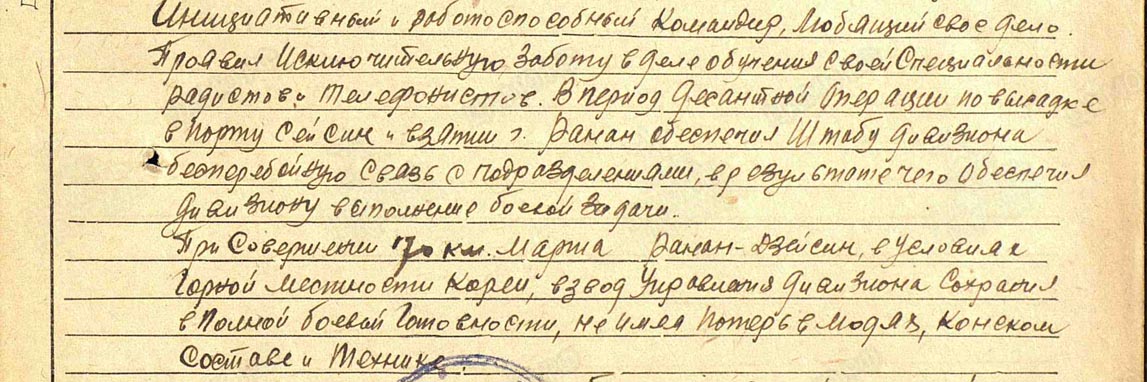 Инициативный и работоспособный командир, любящий свое дело.
Проявил исключительную заботу в деле обучения своей специальности
радистов и телефонистов. В период десантной операции по высадке
в порту Сейсин и взятии г. Ранан обеспечил штабу дивизиона
бесперебойную связь с подразделениями, в результате чего обеспечил
дивизиону выполнение боевой задачи.
При совершении 170 км. марша Ранан-Дзейсин, в условиях
горной местности Кореи, взвод управления дивизиона сохранил
в полной боевой готовности, не имел потерь в людях, конском
составе и технике.